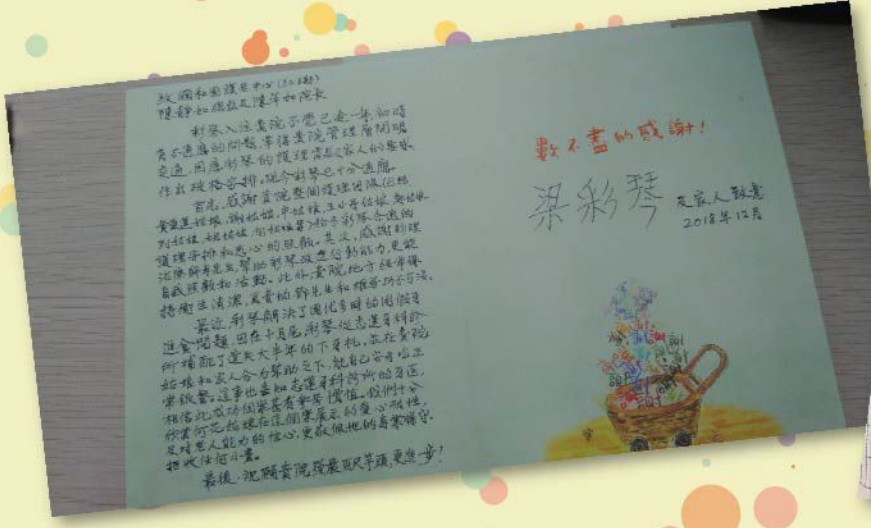 致 國和園護老中心
陳靜如總監及陳萍如院長
彩琴入住貴院不覺已走一年,初時
有不適應的問題,幸得貴院管理層開明
交通,因應彩琴的護理需要及家人的要求
作出破格安排,現今彩琴已十分適應。
首先,感謝貴院整個護理團隊(包括
姑娘,謝姑娘,
姑娘,姑娘,姑娘等)給予彩琴合適的
護理安排和悉心的照顧。其次,感謝物理
治療師 先生,幫助彩琴改進行動能力,更能
自我照顧和活動。此外,貴院地方經常保
持衛生清潔,負責的 先生和 功不可沒。
最近,彩琴解決了困擾多時的
進食問題,因在十月尾,彩琴從志蓮牙科診
所補配了遺失大半年的下牙托,並在貴院
姑娘和家人合力幫助之下,能自己
。這事也喜知志蓮牙科診所的牙醫,
相信此成功個案甚有參考價值。我們十分
欣賞何 姑娘在這個案展示的愛心耐性,
及對老人能力的信心,更敬佩她的專業操守,
拒收任何小費。
最後,祝願貴院發展百尺竿頭,更進一步!
數不盡的感謝!
梁彩琴 及家人致意
2018年12月
謝
謝
謝
謝
謝